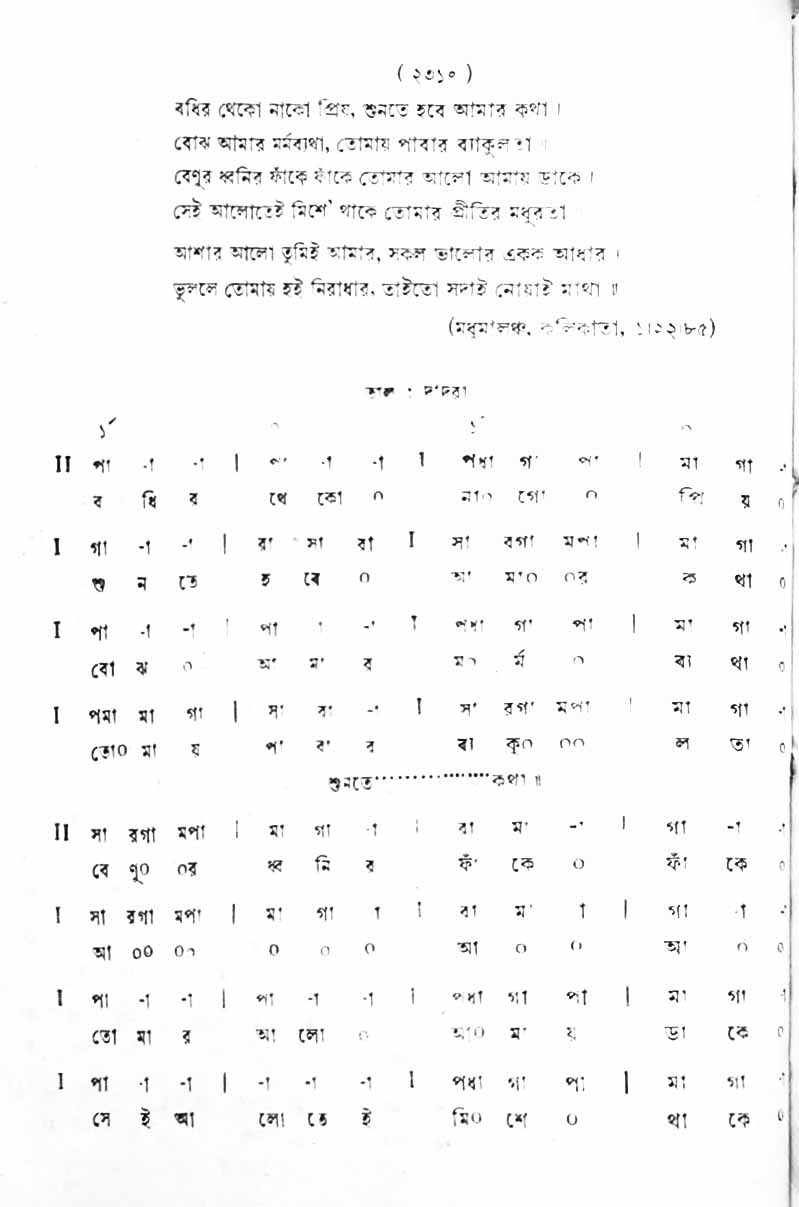 ( ২৩১০ )
বধির থেকো নাকো প্রিয়, শুনতে হবে আমার কথা ।
বোঝ আমার মর্মব্যথা, তোমায় পাবার ব্যাকুলতা ॥
বেণুর ধ্বনির ফাঁকে ফাঁকে তোমার আলো আমায় ডাকে ।
সেই আলোতেই মিশে' থাকে তোমার প্রীতির মধুরতা
আশার আলো তুমিই আমার, সকল ভালোর একক আধার ।
ভুললে তোমায় হই নিরাধার, তাইতো সদাই নোয়াই মাথা ॥
(মধুমালঞ্চ, কলিকাতা, ১।১২।৮৫)
তাল : দাদরা
১´ ০ ১´ ০
II পা -া -া | পা -া -া I পধা গা পা | মা গা -া
ব ধি র থে কো ০ না০ গো ০ প্রি য় ০
I গা -া -া | রা সা রা I সা রগা মপা | মা গা -া
শু ন তে হ বে ০ আ মা০ ০র ক থা ০
I পা -া -া | পা -া -া I পধা গা পা | মা গা -া
বো ঝ ০ আ মা র ম০ র্ম ০ ব্যা থা ০
I পমা মা গা | সা রা -া I সা রগা মপা | মা গা -া
তো০ মা য় পা বা র ব্যা কু০ ০০ ল তা ০
শুনতে..................কথা ॥
II সা রগা মপা | মা গা -া | রা মা -া | গা -া -া
বে ণু০ ০র ধ্ব নি র ফাঁ কে ০ ফাঁ কে ০
I সা রগা মপা | মা গা া | রা মা া | গা -া -া
আ ০০ ০০ ০ ০ ০ আ ০ ০ আ ০ ০
I পা -া -া | পা -া -া I পধা গা পা | মা গা -া
তো মা র আ লো ০ আ০ মা য় ডা কে ০
I পা -া -া | -া -া -া I পধা গা পা | মা গা -া
সে ই আ লো তে ই মি০ শে ০ থা কে ০